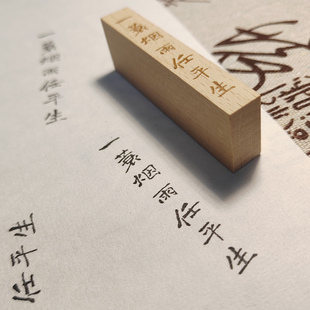 一蓑烟雨任平生
一蓑烟雨任平生
一蓑烟雨任平生
任平生